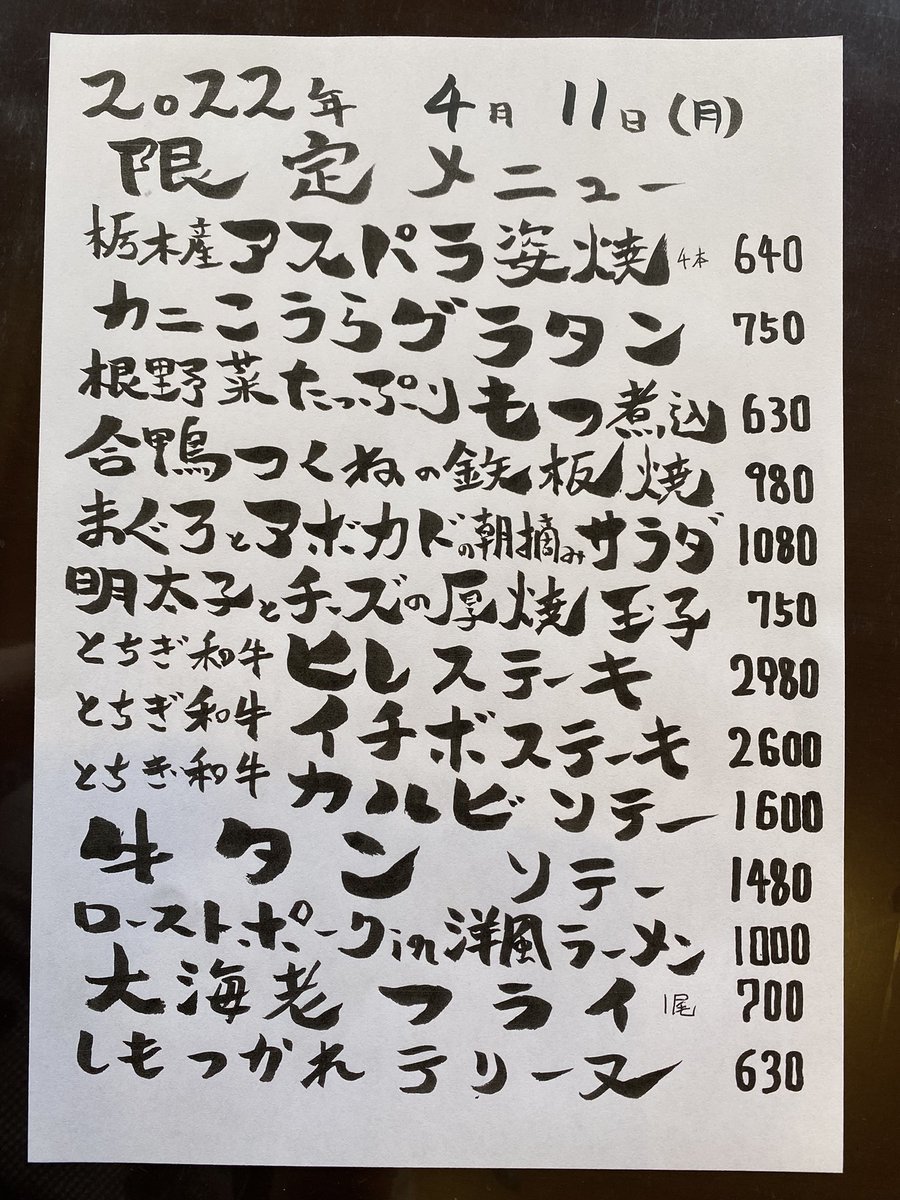 2022年 4月 11日(月)
限定メニュー
栃木産アスパラ姿焼 4本 640
カニこうらグラタン 750
根野菜たっぷりもつ煮込 630
合鴨つくねの鉄板焼 980
まぐろとアボカドの朝摘みサラダ 1080
明太子とチーズの厚焼玉子 750
とちぎ和牛 ヒレステーキ 2980
とちぎ和牛 イチボステーキ 2600
とちぎ和牛 カルビソテー 1600
牛タン ソテー 1480
ローストポークin洋風ラーメン 1000
大海老フライ 1尾 700
しもつかれテリーヌ 630